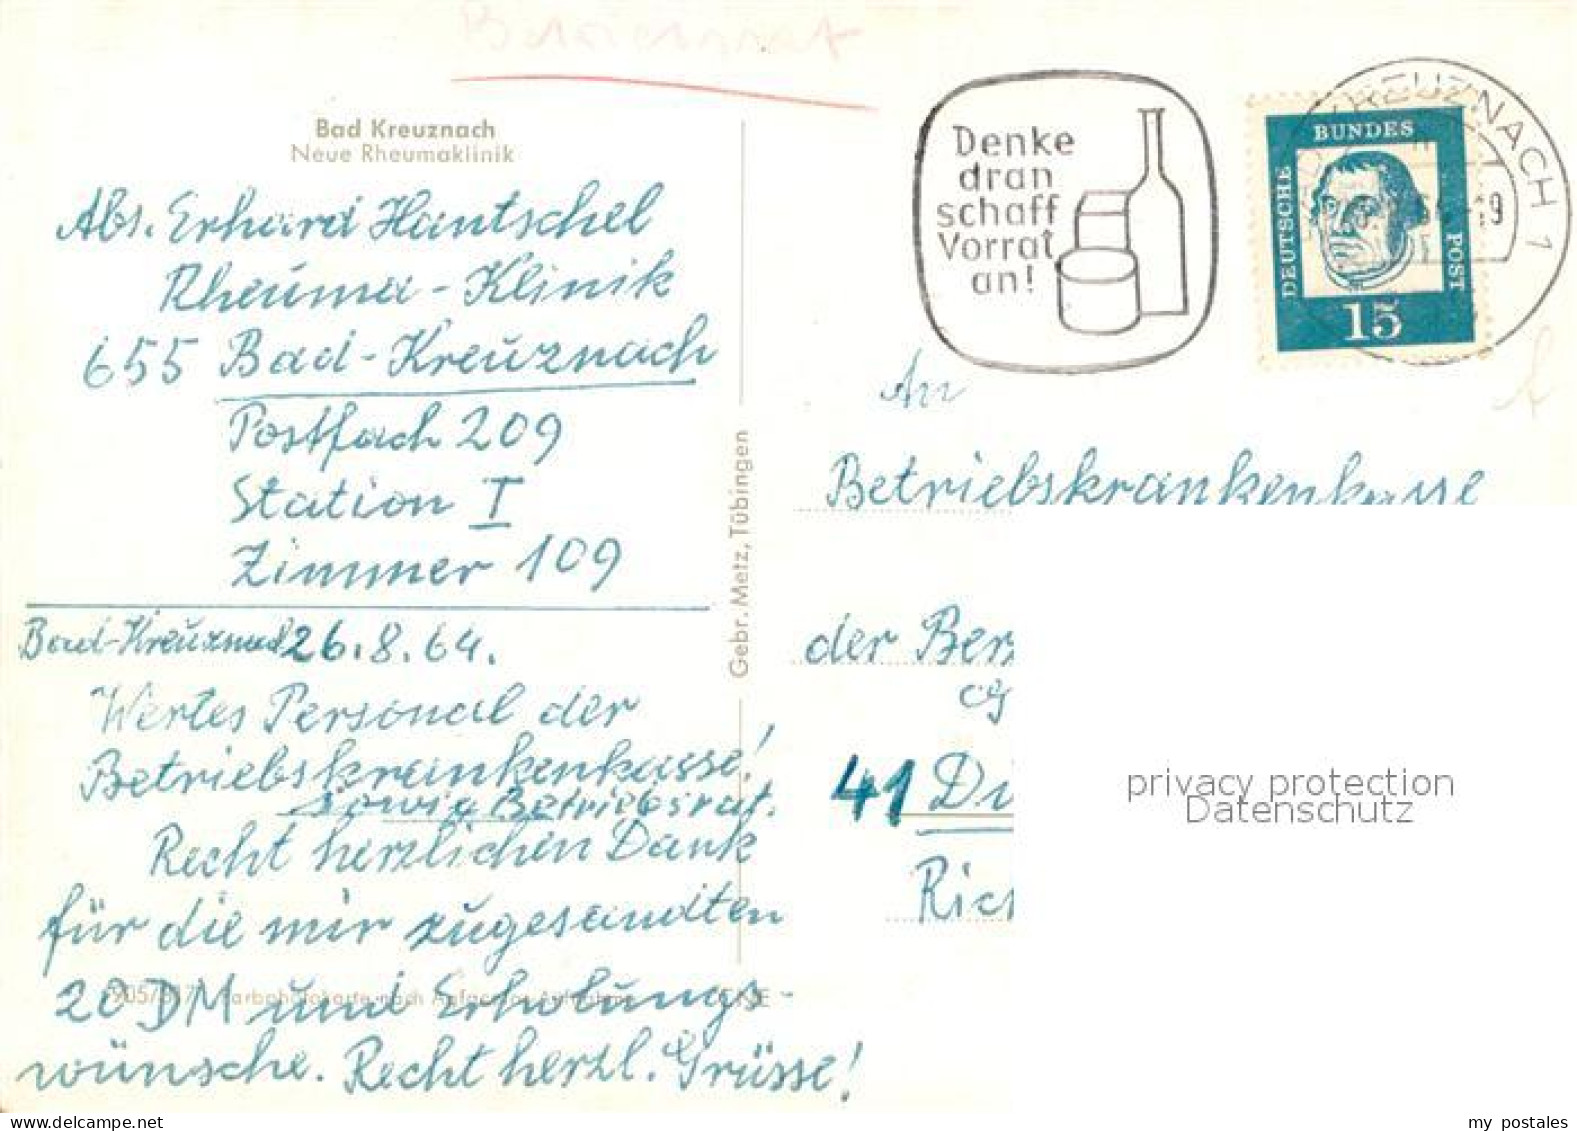 Betriebsrat
Bad Kreuznach
Neue Rheumaklinik
Abs. Erhard Hantschel
Rheuma-Klinik
655 Bad-Kreuznach
Postfach 209
Station I
Zimmer 109
Bad-Kreuznach 26.8.64.
Wertes Personal der
Betriebskrankenkasse!
sowie Betriebsrat.
Recht herzlichen Dank
für die mir zugesandten
20 DM und Erholungs-
wünsche. Recht herzl. Grüsse!
Farbphotokarte nach Agfacolor-Aufnahme
Gebr. Metz, Tübingen
Denke
dran
schaff
Vorrat
an!
DEUTSCHE
BUNDES
POST
15
KREUZNACH 1
-19
An
Betriebskrankenkasse
der Ber
41 Du
privacy protection
Datenschutz
my postales